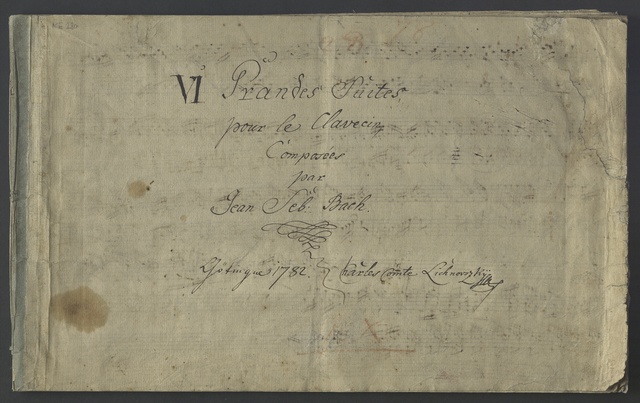 VI Grandes Suites
pour le Clavecin
Composées
par
Jean Seb. Bach.
Göttingue 1782. Charles Comte Lichnovsky